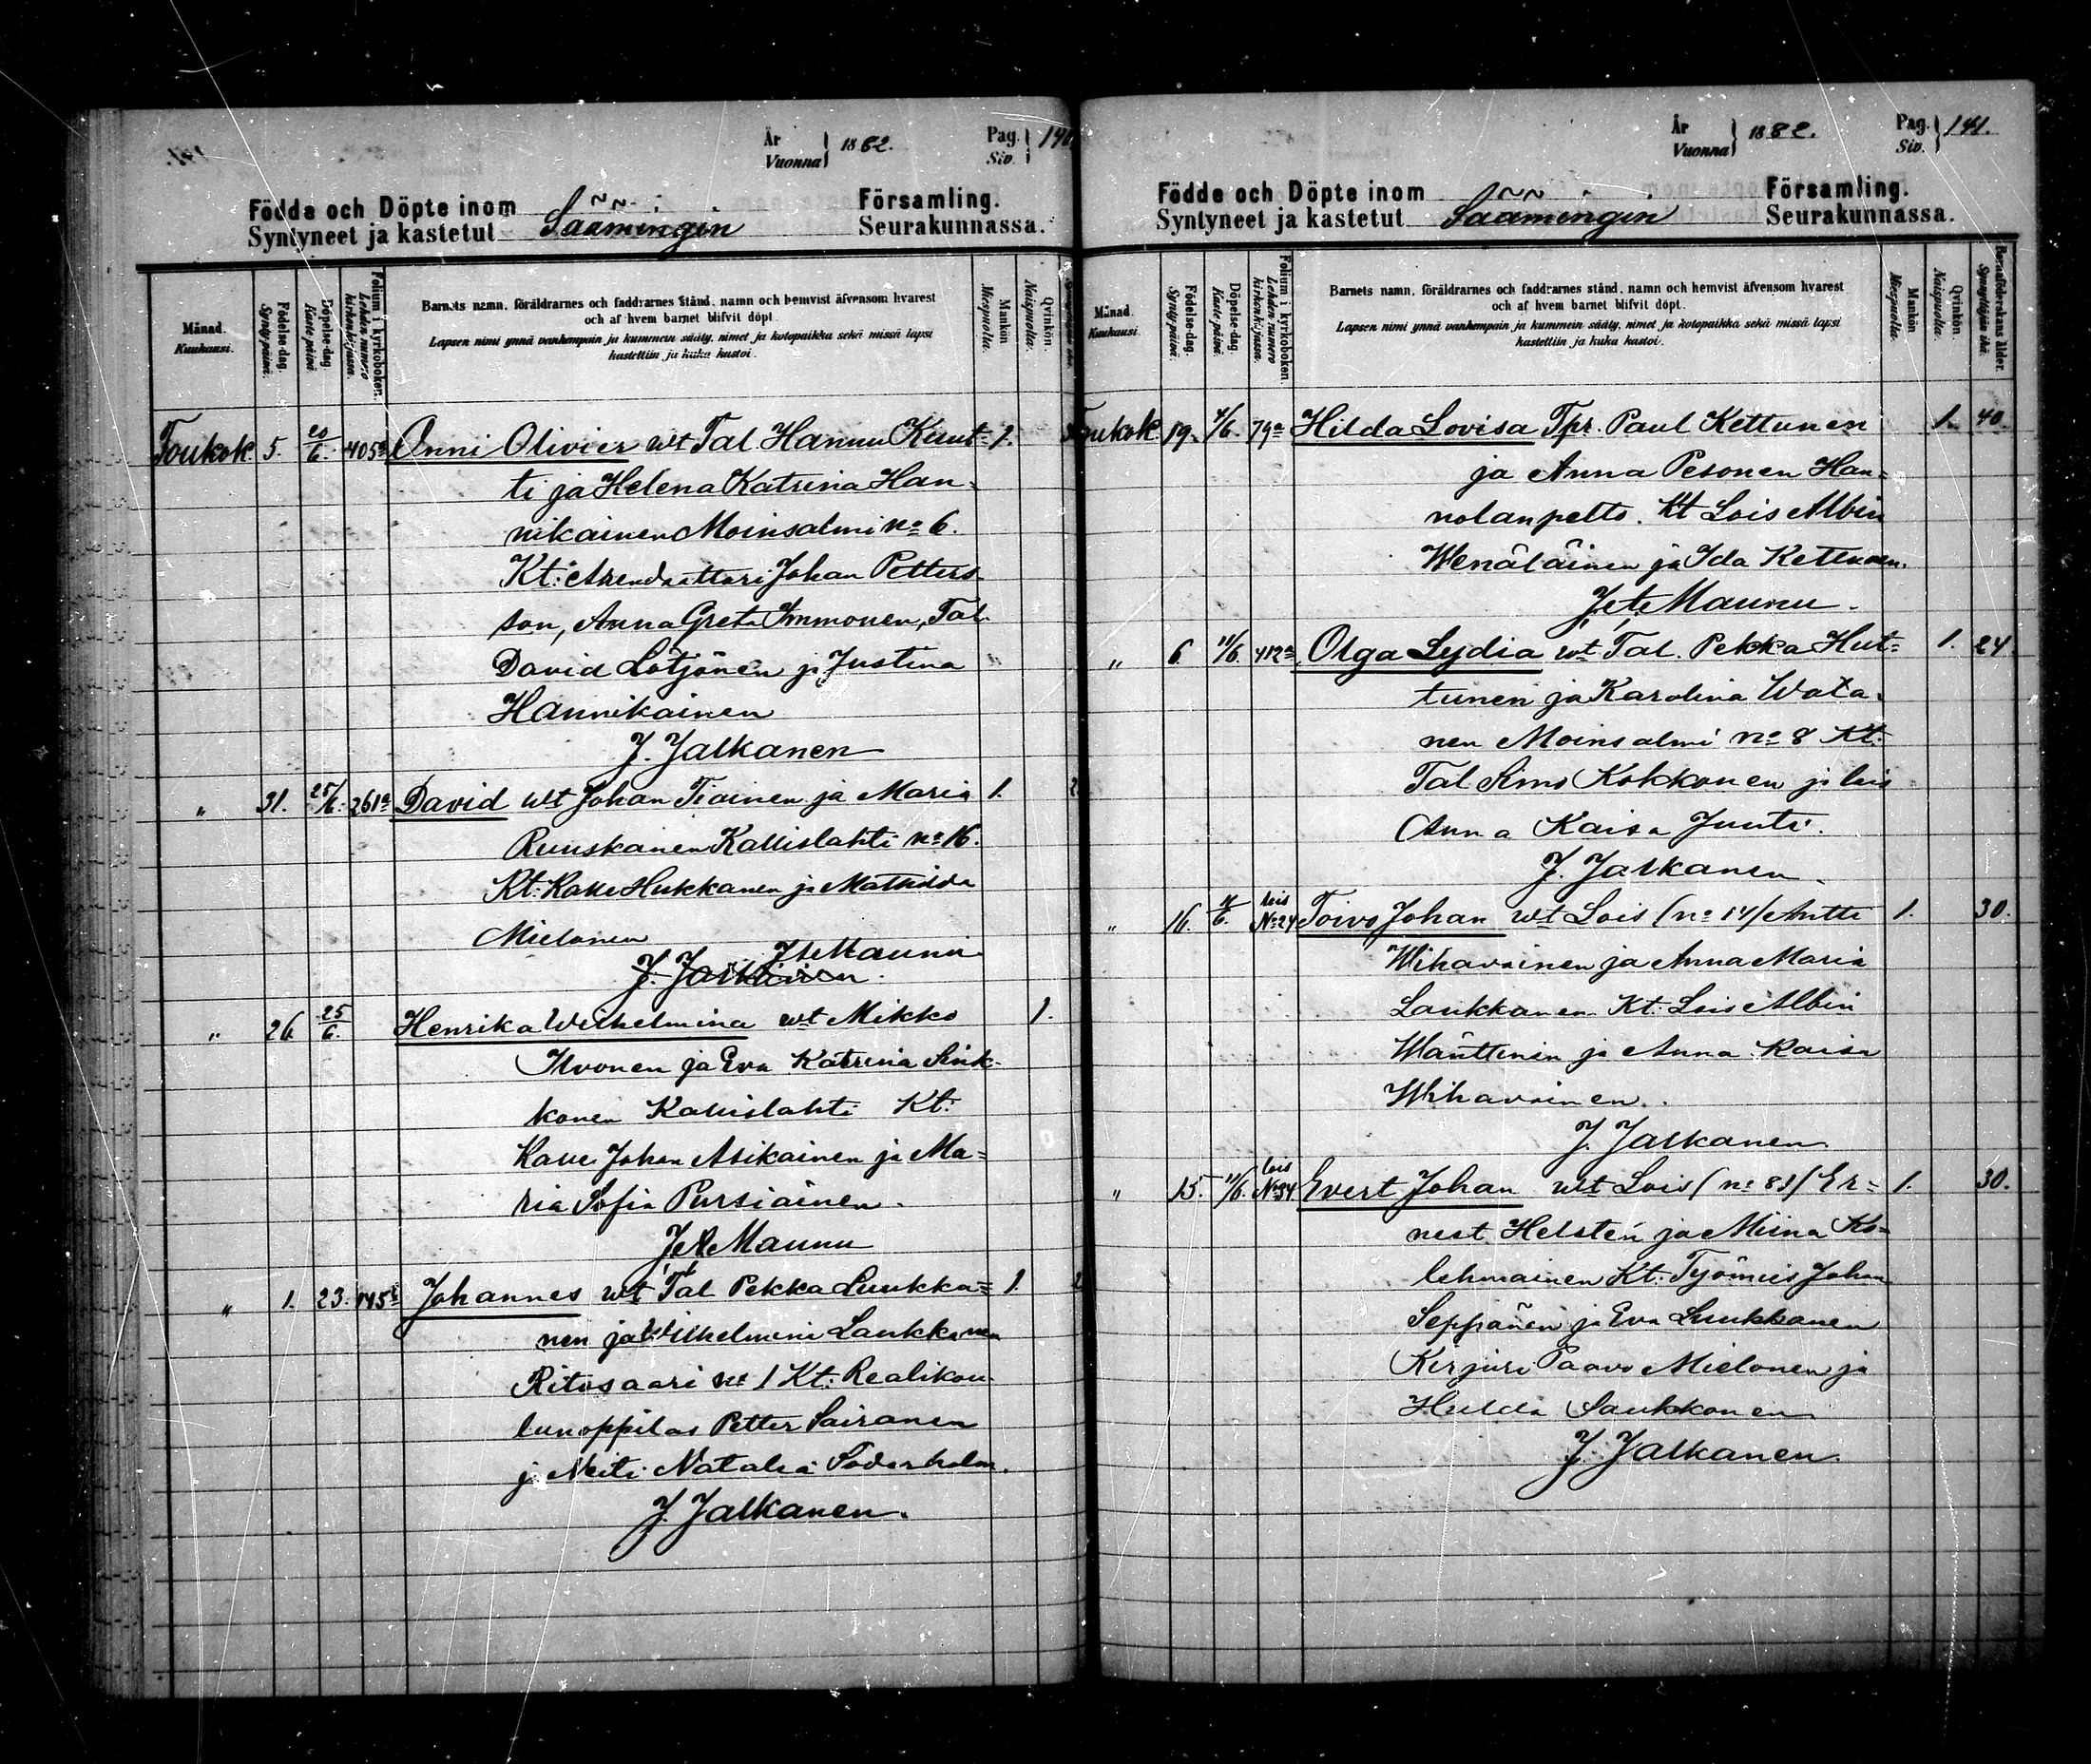 År
Vuonna } 1882.
Pag.
Siv. } 140
Födde och Döpte inom
Syntyneet ja kastetut Säämingin
Församling.
Seurakunnassa.
Månad.
Kuukausi.
Födelse-dag.
Synty-päivä.
Döpelse-dag
Kaste-päivä
Folium i kyrkoboken.
Lehden numero
kirkonkirjassa.
Barnets namn, föräldrarnes och faddrarnes stånd, namn och hemvist äfvensom hvarest
och af hvem barnet blifvit döpt.
Lapsen nimi ynnä vanhempain ja kummein sääty, nimet ja kotopaikka sekä missä lapsi
kastettiin ja kuka kastoi.
Mankön
Miespuolia.
Qvinkön.
Naispuolia.
Toukok. 5. 20/6. 405a Onni Olivier wt Tal. Hannu Kunt= 1.
ti ja Helena Katrina Han-
nikainen Moinsalmi no 6.
Kt: Arendaattori Johan Petters-
son, Anna Greta Immonen, Tal.
David Lötjönen ja Justina
Hannikainen
J. Jalkanen
" 31. 25/6. 261a David wt Johan Tiainen ja Maria 1.
Ruuskanen Kallislahti no 16.
Kt: Kalle Hukkanen ja Mathilda
Mielonen
J. Jalkanen
" 26. 25/6. Henrika Wilhelmina wt Mikko 1.
Ilvonen ja Eva Katrina Sink-
konen Kallislahti Kt:
Johan Asikainen ja Ma=
ria Sofia Pursiainen.
Maunu
" 1. 23. 145 Johannes wt Tal Pekka Luukka= 1.
nen ja Wilhelmina Laukkanen
Ritosaari no 1 Kt: Realikou-
lunoppilas Petter Sairanen
ja Neiti Natalia Söderholm.
J. Jalkanen.
År
Vuonna } 1882.
Pag.
Siv. } 141.
Födde och Döpte inom
Syntyneet ja kastetut Säämingin
Församling.
Seurakunnassa.
Månad.
Kuukausi.
Födelse-dag.
Synty-päivä.
Döpelse-dag
Kaste-päivä.
Folium i kyrkoboken.
Lehden numero
kirkonkirjassa.
Barnets namn, föräldrarnes och faddrarnes stånd, namn och hemvist äfvensom hvarest
och af hvem barnet blifvit döpt.
Lapsen nimi ynnä vanhempain ja kummein sääty, nimet ja kotopaikka sekä missä lapsi
kastettiin ja kuka kastoi.
Mankön
Miespuolia.
Qvinkön.
Naispuolia.
Barnaföderskans ålder.
Synnyttäjän ikä.
Toukok. 19. 4/6. 79a Hilda Lovisa Tpr. Paul Kettunen 1. 40.
ja Anna Pesonen Han=
nolanpelto. Kt Lois Albin
Wenäläinen ja Ida Kettunen.
Maunu.
" 6. 11/6. 412a Olga Lydia wt Tal. Pekka Hut= 1. 24
tunen ja Karolina Wata-
nen Moinsalmi no 8 Kt:
Tal Simo Kokkonen ja lois
Anna Kaisa Juuti.
J. Jalkanen.
" 16. 11/6. lois No 24 Toivo Johan wt Lois (no 14) Antti 1. 30.
Wihavainen ja Anna Maria
Laukkanen. Kt: Lois Albin
Wänttinen ja Anna Kaisa
Wihavainen.
J. Jalkanen
" 15. 11/6. lois No 34 Evert Johan wt Lois (no 81) Er= 1. 30.
nest Helstén ja Miina Ko=
lehmainen Kt: Työmies Johan
Seppänen ja Eva Luukkanen
Kirjuri Paavo Mielonen ja
Hulda Laukkonen
J. Jalkanen.